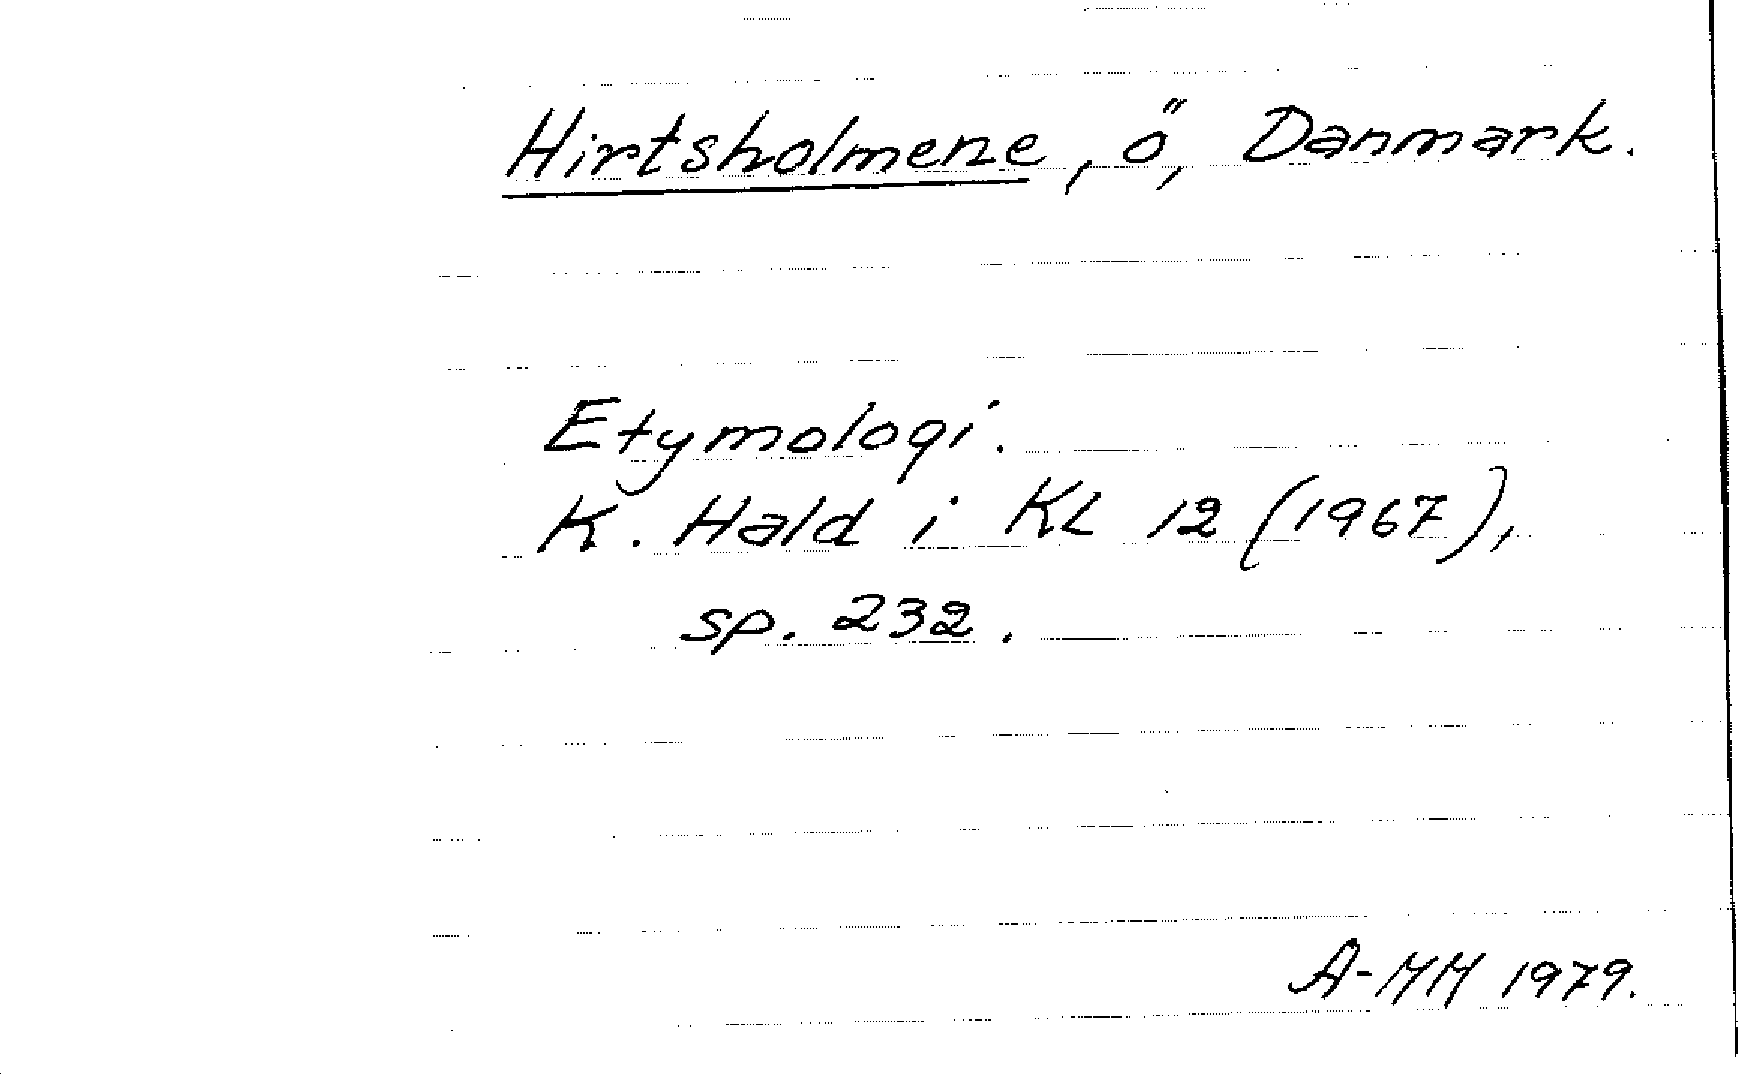 Hirtsholmene, ö, Danmark.
Etymologi.
K. Hald i KL 12 (1967),
sp. 232.
A-MH 1979.